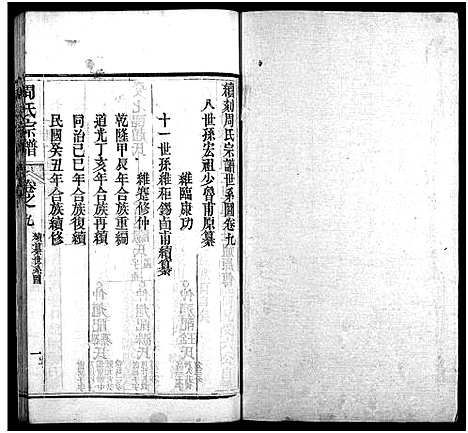 續刻周氏宗譜世系圖卷九
八世孫宏祖少魯甫原纂
維臨康功
十一世孫維柜錫卣甫續纂
維楚修仲
乾隆甲辰年合族重鐫
道光丁亥年合族再續
同治己巳年合族復續
民國癸丑年合族續修
周氏宗譜
卷之九
世系圖
一